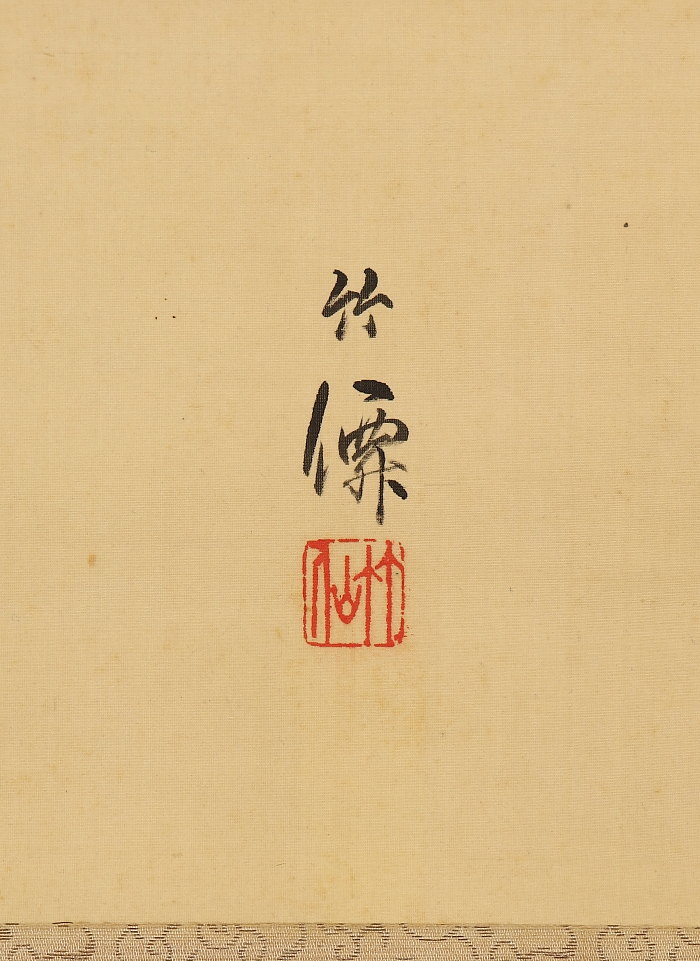 竹
僊
竹仙